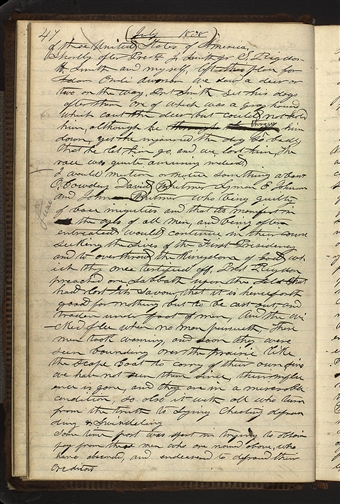 417 July 1838
of these United States of America.
Shortly after Prest J. Smith jr S. Rigdon
H. Smith and myself, left this place for
Adam Ondi Awman we saw a deer or
two on the way, Bro Smith set his dogs
after them one of which was a gray hound
which caut the deer but could not hold
him, although he threw him
down, yet he injured the dog so badly
that he let him go, and we lost him, the
race was quite amusing indeed.
I would mention or notice something about
O. Cowdery David Whitmer Lyman E Johnson
and John Whitmer who being guilty
of base iniquities and that to manifest in
the eyes of all men, and being often
entreated would continue in their course
seeking the lives of the First Presidency
and to overthrow the Kingdom of God
which they once testified off. Prest Rigdon
preached one Sabbath upon the salt that
had lost its savour, that it is henceforth
good for nothing but to be cast out, and
troden under foot of men, And the wi
cked flee when no man pursueth, These
men took warning, and soon they were
seen bounding over the prairie like
the scape Goat to carry of their own sins
we have not seen them since, their influ
ence is gone, and they are in a miserable
condition, so also it with all who turn
from the truth to lying Cheating defrau
ding & swindeling
Some time past was spent in trying to obtain
pay from these men who are named above, who
have absconded, and endeavored to defraud their
creditors